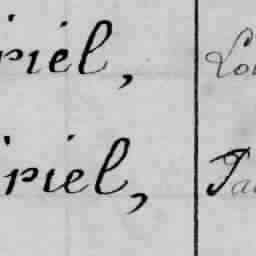 riel, Lou
riel, Ja